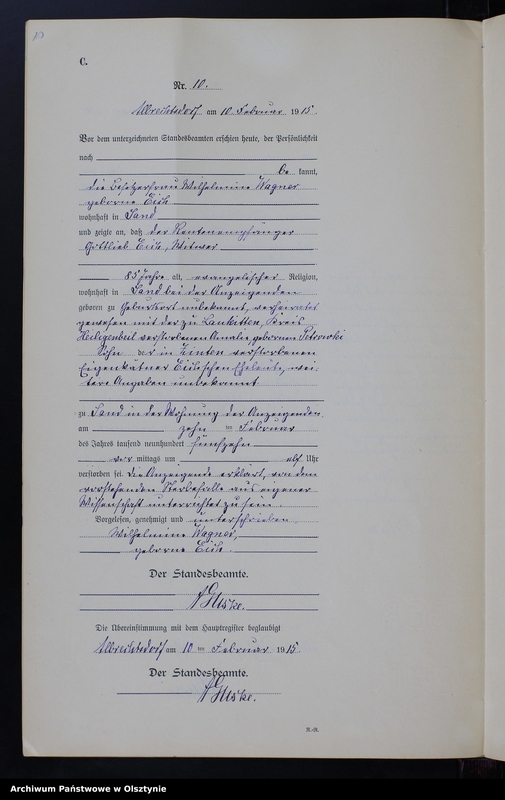 C.
Nr. 10.
Albrechtsdorf am 10 Februar 1915.
Vor dem unterzeichneten Standesbeamten erschien heute, der Persönlichkeit
nach
be kannt,
die Besitzerfrau Wilhelmine Wagner
geborne
wohnhaft in Sand
und zeigte an, daß der Rentenempfänger
Gottlieb Witwer
85 Jahre alt, evangelischer Religion,
wohnhaft in Sand bei der Anzeigenden
geboren zu Geburtsort unbekannt, verheiratet
gewesen mit der zu Lankitten, Kreis
Heiligenbeil verstorbenen Amalie, gebornen Petrowski
Sohn der in Zinten verstorbenen
Eigenkätner Eheleute, wei-
tere Angaben unbekannt
zu Sand in der Wohnung der Anzeigenden
am zehn ten Februar
des Jahres tausend neunhundert fünfzehn
vor mittags um elf Uhr
verstorben sei. Die Anzeigende erklärt, von dem
vorstehenden Sterbefalle aus eigener
Wissenschaft unterrichtet zu sein.
Vorgelesen, genehmigt und unterschrieben.
Wilhelmine Wagner,
geborne
Der Standesbeamte.
Die Übereinstimmung mit dem Hauptregister beglaubigt
Albrechtsdorf am 10 ten Februar 1915.
Der Standesbeamte.
Archiwum Państwowe w Olsztynie